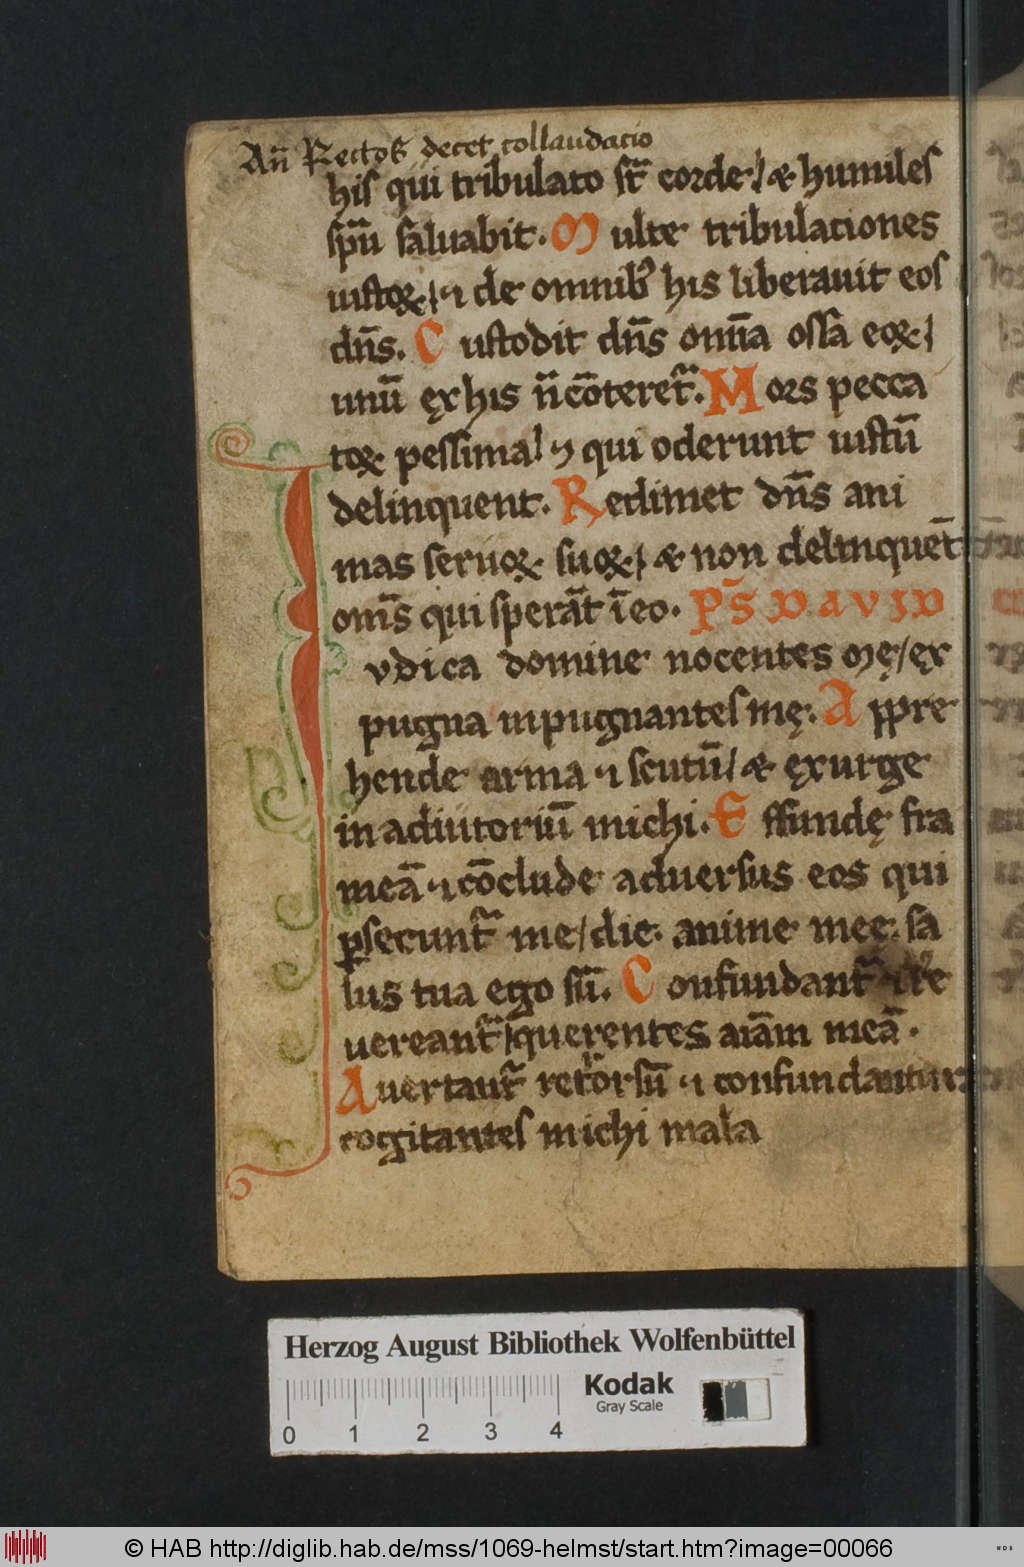 Añ Rectos decet collaudacio
his qui tribulato st̄ corde / & humiles
sp̄u saluabit. Multe tribulationes
iustoꝝ / ⁊ de omnibꝰ his liberauit eos
dn̄s. Custodit dn̄s omīa ossa eoꝝ /
unū ęx his n̄ cōteret᷑. Mors pecca
toꝝ pessima / ⁊ qui oderunt iustū
delinquent. Redimet dn̄s ani
mas seruoꝝ suoꝝ / & non delinquēt
om̄s qui sperāt ī eo. PS̄ DAVID
Iudica domine nocentes mę / ęx
pugna inpugnantes mę. Appre
hende arma ⁊ scutū / & ęxurge
in adiutoriū michi. Effundę fra
meā ⁊ cōclude aduersus eos qui
ꝑsecunt᷑ me / dic anime mee. sa
lus tua ego sū. Confundant᷑ ⁊ re
uereant᷑ / querentes aīam meā.
Auertant᷑ retrorsū ⁊ confundantur
cogitantes michi mala
Herzog August Bibliothek Wolfenbüttel
Kodak
Gray Scale
0 1 2 3 4
© HAB http://diglib.hab.de/mss/1069-helmst/start.htm?image=00066